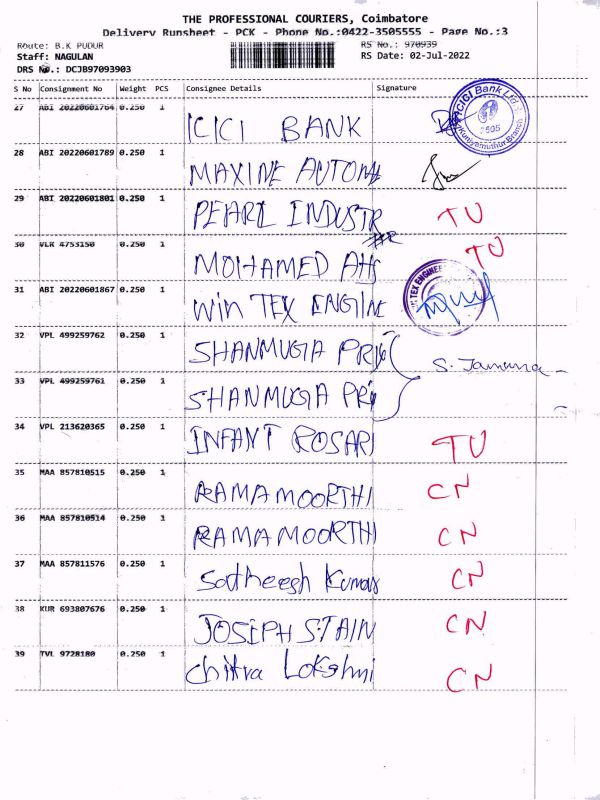 THE PROFESSIONAL COURIERS, Coimbatore
Delivery Runsheet - PCK - Phone No.:0422-3505555 - Page No.:3
Route: B.K PUDUR
RS No.: 970939
Staff: NAGULAN
RS Date: 02-Jul-2022
DRS No.: DCJB97093903
S No Consignment No Weight PCS Consignee Details Signature
27 ABI 20220601764 0.250 1 ICICI BANK
ICICI Bank Ltd
Kuniyamuthur Branch
28 ABI 20220601789 0.250 1 MAXINE AUTOM
29 ABI 20220601801 0.250 1 PEARL INDUSTR TU
30 VLK 4753150 0.250 1 MOHAMED AHS TU
31 ABI 20220601867 0.250 1 Win TEX ENGINE
TEX ENGINEE
32 VPL 499259762 0.250 1 SHANMUGA PRIY S. Jamuna
33 VPL 499259761 0.250 1 SHANMUGA PRIY
34 VPL 213620365 0.250 1 INFANT ROSARI TU
35 MAA 857810515 0.250 1 RAMAMOORTHI CN
36 MAA 857810514 0.250 1 RAMAMOORTHI CN
37 MAA 857811576 0.250 1 Satheesh Kumar CN
38 KUR 693807676 0.250 1 JOSEPH STAIN CN
39 TVL 9728180 0.250 1 Chitra Lakshmi CN